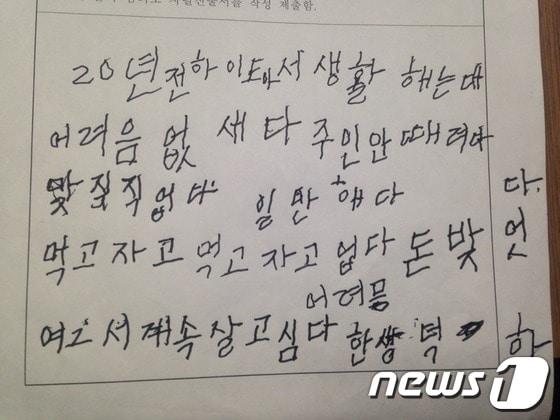 자필진술서를 작성 제출함.
20년전하이도아서 생활 해는대
어려음 없 새다 주인안때려다
맞질직 없다 일만 해다
먹고자고 먹고자고 업다 돈밪
어려믐
여그서 계속 살고심다 한쌩덕
다.
엇
하
news1